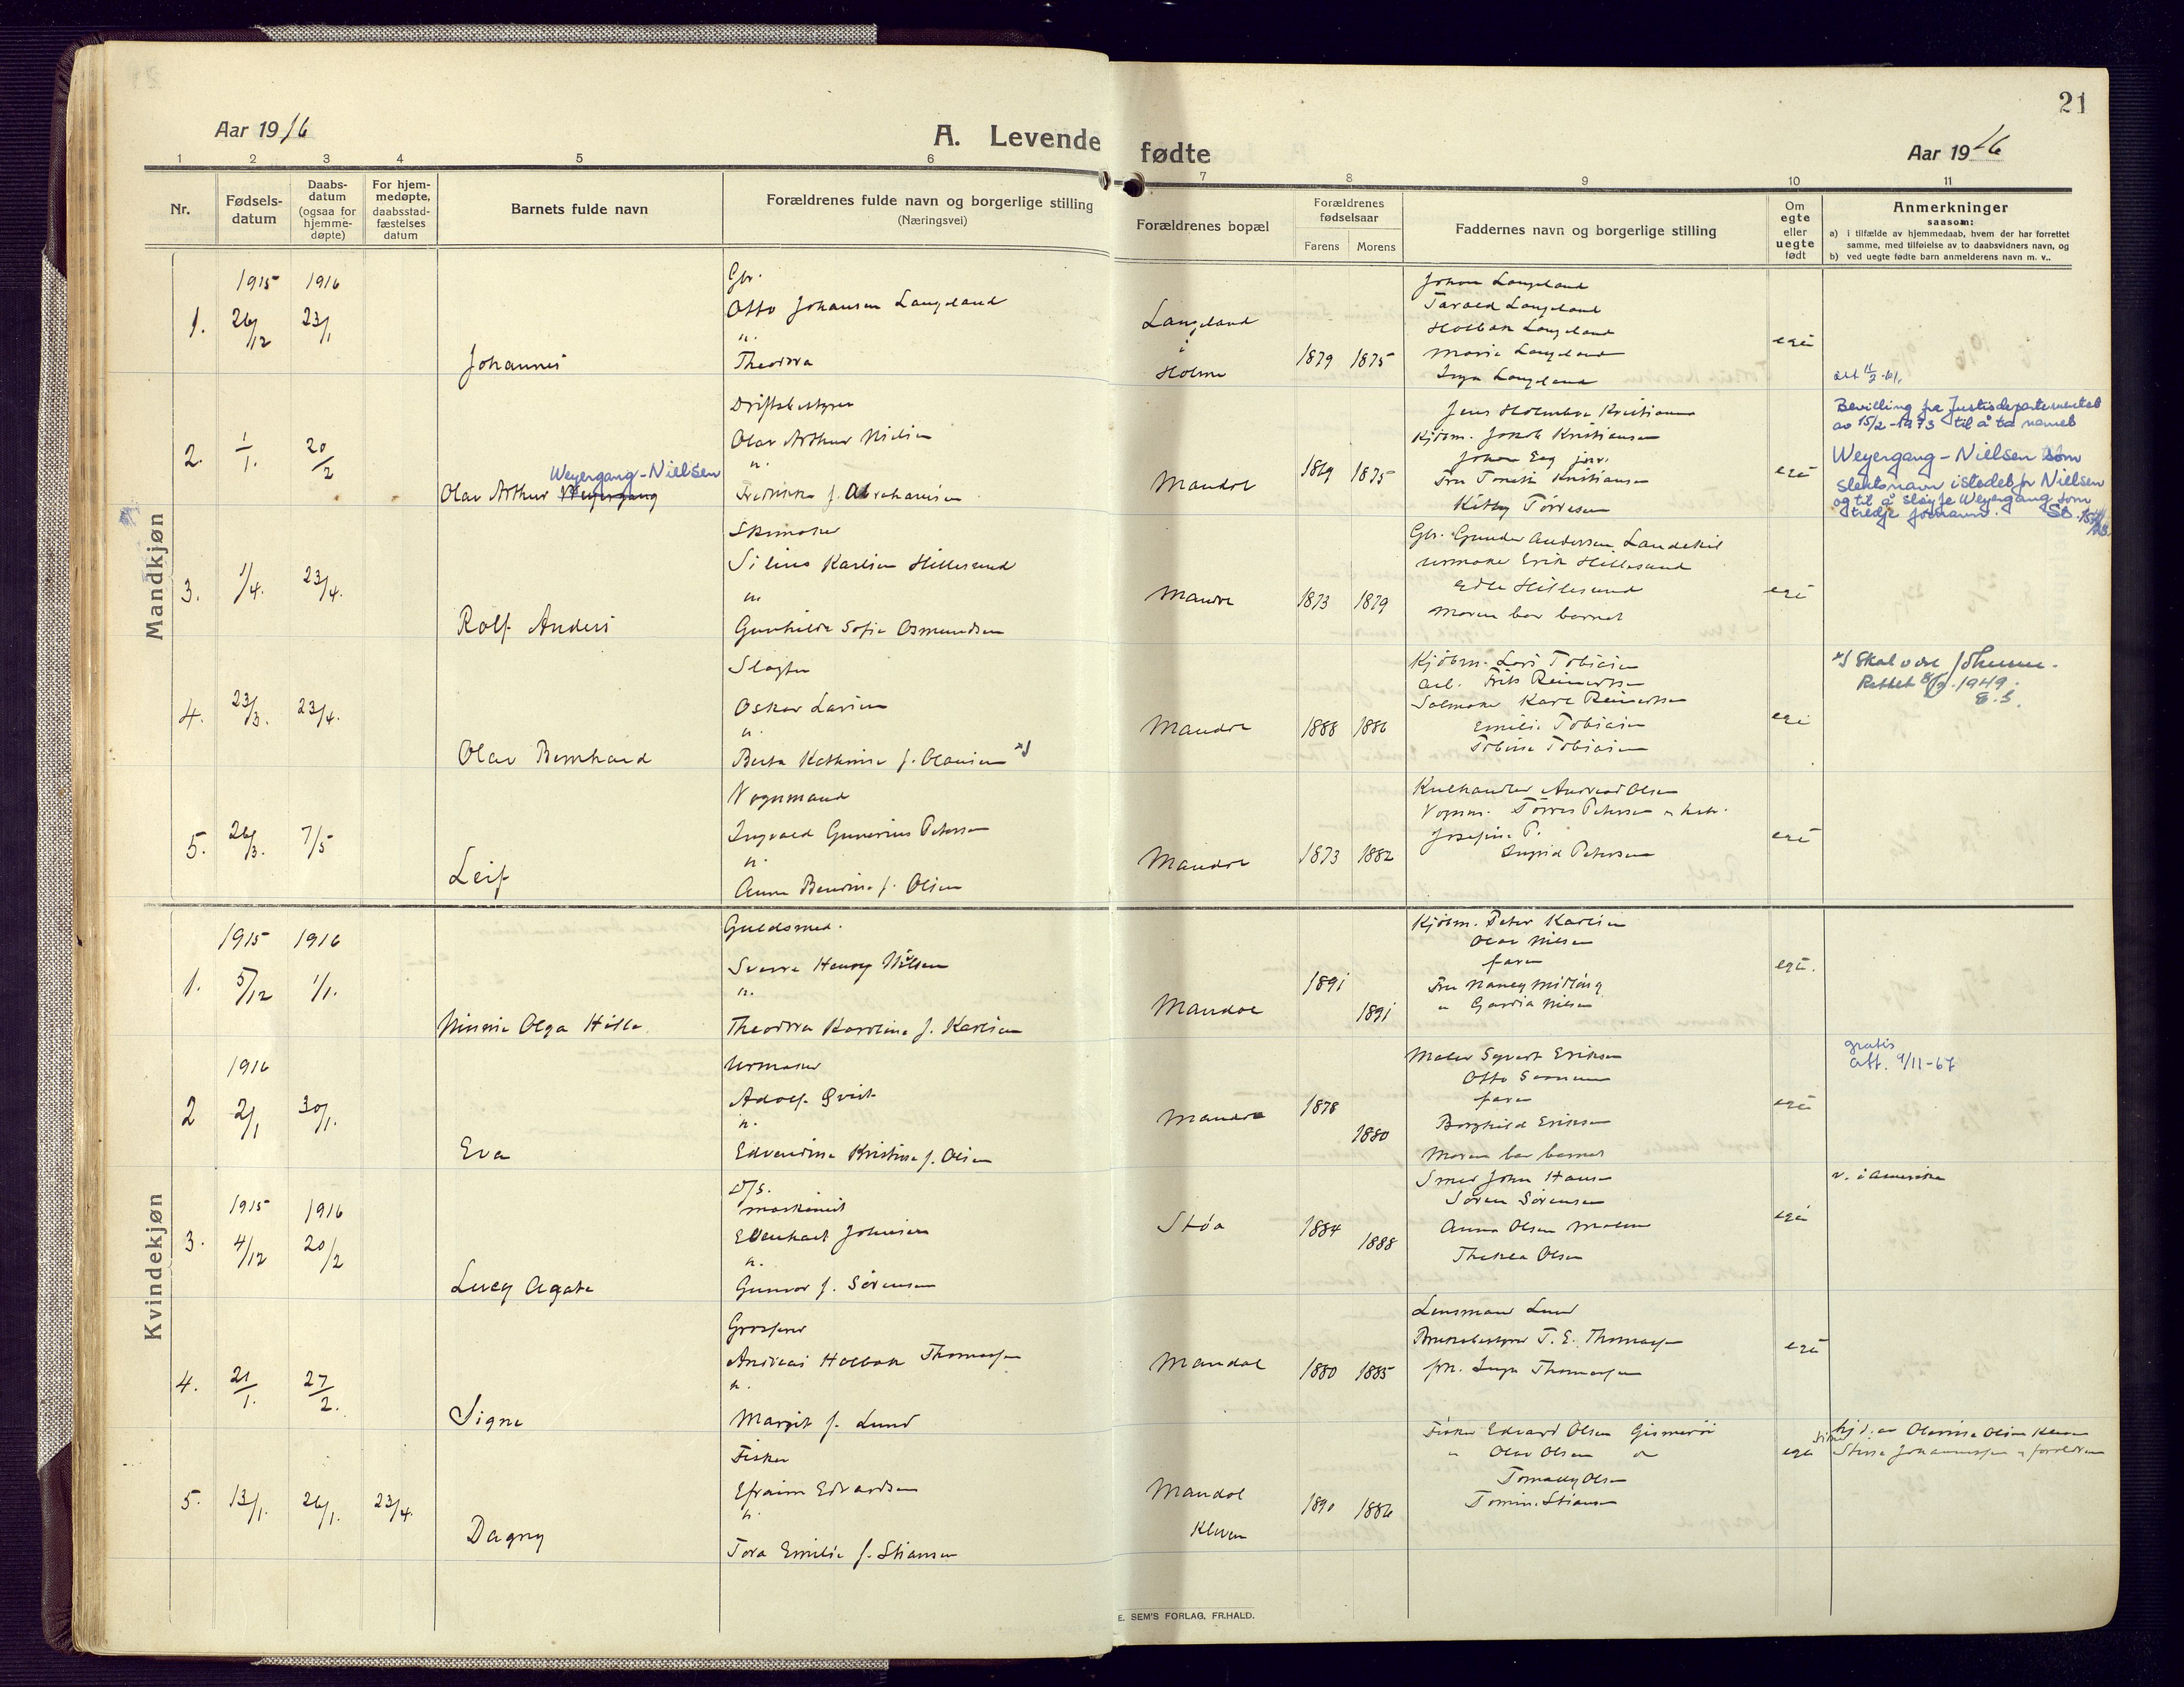 21
Aar 1916
A. Levende fødte
Aar 1916
1 2 3 4 5 6 7 8 9 10 11
Nr.
Fødsels-
datum
Daabs-
datum
(ogsaa for
hjemme-
døpte)
For hjem-
medøpte,
daabsstad-
fæstelses
datum
Barnets fulde navn
Forældrenes fulde navn og borgerlige stilling
(Næringsvei)
Forældrenes bopæl
Forældrenes
fødselsaar
Farens Morens
Faddernes navn og borgerlige stilling
Om
egte
eller
uegte
født
Anmerkninger
saasom:
a) i tilfælde av hjemmedaab, hvem der har forrettet
samme, med tilføielse av to daabsvidners navn, og
b) ved uegte fødte barn anmelderens navn m. v..
Mandkjøn
1915 1916
1. 26/12 23/1
Johannes
Gbr.
Otto Johansen Langeland
h.
Theodora
Langeland
i
Holme
1879 1875
Johan Langeland
Tarald Langeland
Holbak Langeland
Maria Langeland
Inga Langeland
egte
2. 1/1. 20/2
Weyergang-Nielsen
Olav Arthur Weyergang
Driftsbestyrer
Olav Arthur Nielsen
h.
Fredrikke f. Abrahamsen
Mandal
1869 1875
Jens Holmboe Kristiansen
Kjøbm. Jakob Kristiansen
Johan Eeg junr.
Fru Tomine Kristiansen
Kitty Tørresen
egte
att 11/2-61.
Bevilling fra Justisdepartementet
av 15/2-1973 til å ta navnet
Weyergang-Nielsen som
slektsnavn istedet for Nielsen
og til å sløyfe Weyergang som
tredje fornavn.
3. 1/4. 23/4.
Rolf Anders
Skomaker
Silius Karlsen Hillesund
h.
Gunhilde Sofie Osmundsen
Mandal
1873 1879
Gbr. Gunder Andersen Landekil
Urmaker Erik Hillesund
Edle Hillesund
Moren bar barnet
egte
4. 23/3. 23/4.
Olav Bernhard
Slagter
Oskar Larsen
h.
Berta Kathrine f. Olausen x)
Mandal
1888 1886
Kjøbm. Lars Tobiasen
arb. Frits Reinertsen
Salmaker Karl Reinertsen
Emilie Tobiasen
Tobine Tobiasen
egte
x) Skal være Johnsen.
Rettet 8/9.1949.
E.S.
5. 26/3. 7/5
Leif
Vognmand
Ingvald Gunerius Petersen
h.
Anna Bendine f. Olsen
Mandal
1873 1882
Kulhandler Andreas Olsen
Vognm. Tørres Petersen og hustr.
Josefine P.
Ingrid Petersen
egte
Kvindekjøn
1915 1916
1. 5/12 1/1.
Minnie Olga Hille
Guldsmed.
Sverre Henry Nilsen
h.
Theodora Karoline f. Karlsen
Mandal
1891
1891
Kjøbm. Peter Karlsen
Olav Nilsen
faren
Fru Nancy Midling
" Gardia Nilsen
egte.
1916
2 2/1 30/1.
Eva
Urmaker
Adolf Qvist
h.
Edvardine Kristine f. Olsen
Mandal
1878
1880
Maler Sigvart Eriksen
Otto Sørensen
faren
Borghild Eriksen
Moren bar barnet
egte
gratis
att. 9/11-67
1915 1916
3. 4/12 20/2
Lucy Agate
D/S.
maskinist
Edenhart Johnsen
h.
Gunvor f. Sørensen
Støa
1884
1888
Smed John Hansen
Søren Sørensen
Anna Olsen Malme
Thekla Olsen
egte
v. i Amerika
4. 21/1. 27/2.
Signe
Grosserer
Andreas Holbak Thomassen
h.
Margit f. Lund
Mandal
1880 1885
Lensmand Lund
Bruksbestyrer T. E. Thomassen
frk. Inga Thomassen
egte
5. 13/1. 26/1. 23/4.
Dagny
Fisker
Efraim Edvardsen
h.
Tora Emilie f. Stiansen
Mandal
Kleven
1890 1886
Fisker Edvard Olsen Gismerøi
" Olav Olsen do
Tomally Olsen
Tomin. Stiansen
egte
hjd. av Olavine Olsen Kleven
Johannessen og forældrene
E. SEM'S FORLAG, FR.HALD.